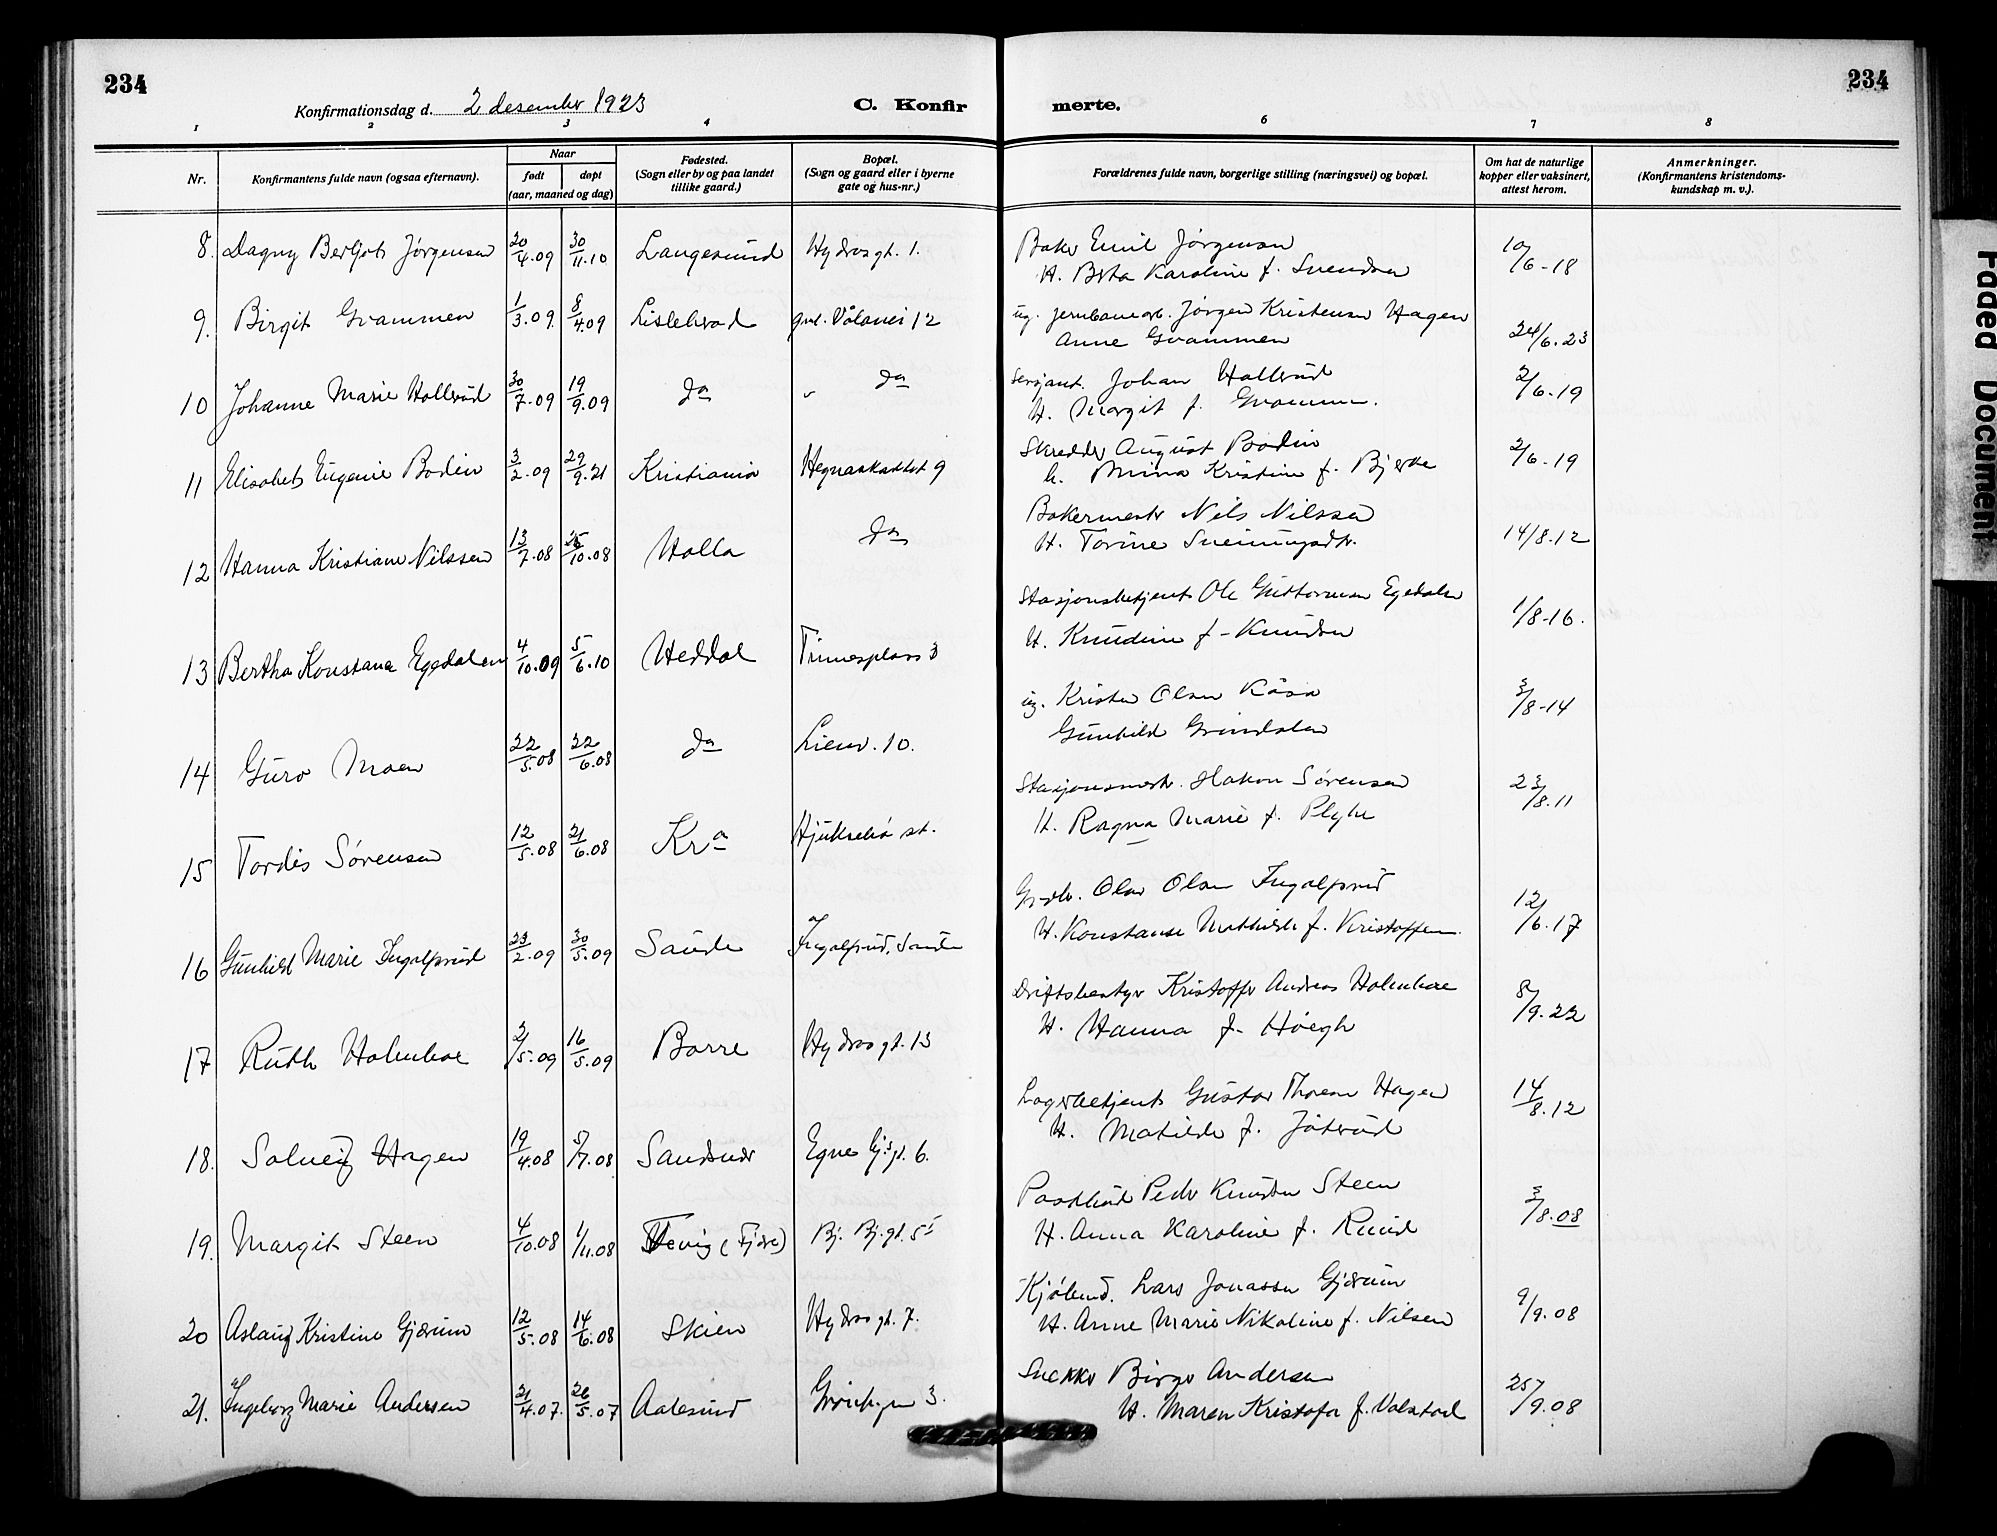 234
234
Konfirmationsdag d. 2 desember 1923
C. Konfir
merte.
1 2 3 4 5 6 7 8
Nr.
Konfirmantens fulde navn (ogsaa efternavn).
Naar
født
døpt
(aar, maaned og dag)
Fødested.
(Sogn eller by og paa landet
tillike gaard.)
Bopæl.
(Sogn og gaard eller i byerne
gate og hus-nr.)
Forældrenes fulde navn, borgerlige stilling (næringsvei) og bopæl.
Om hat de naturlige
kopper eller vaksinert,
attest herom.
Anmerkninger.
(Konfirmantens kristendoms-
kundskap m. v.).
8. Dagny Bergljot Jørgensen 20/4.09 30/11.10 Langesund Hydros gt. 1. Baker Emil Jørgensen 10/6-18
H. Karoline f. Svendsen
9. Birgit Grammen 1/3.09. 8/4.09 Lisleherad 12 ug. jernbanearb. Jørgen Kristensen Hagen 24/6.23
Anne Grammen
10 Johanne Marie Hollerud 30/7.09 19/9.09 do do Serjant. Johan Hollerud 2/6.19
H. Margit f.
11 Elisabet Eugenie Bodin 3/2.09 29/9.21 Kristiania 9 Skredder August Bodin 2/6.19
h. Mina Kristine f. Bjerke
12 Hanna Kristiane Nilssen 13/7.08 /10.08 Holla do Bakermester Nils Nilssen 14/8.12
H. Torine
13 Bertha Konstanse Egedalen 4/10.09 5/6.10 Heddal Tinnesplass 3 Stasjonsbetjent Ole Guttormsen Egedalen 1/8-16.
H. Knudine f. Knudsen
14 Guro Moen 22/5.08 22/6.08 do Lienv. 10. ug. Kristen Olsen Kåsa 3/8-14
Gunhild Grindalen
15 Tordis Sørensen 12/5.08 21/6.08 Kra Hjuksebø st. Stasjonsmestr. Hakon Sørensen 23/8.11
H. Ragna Marie f.
16 Gunhild Marie Ingolfsrud 23/2.09 30/5.09 Saude Ingolfsrud, Saude Olav Olsen Ingolfsrud 12/6.17
H. Konstanse Mathilde f. Kristoffersen.
17 Ruth Holmboe 2/5.09 16/5.09 Borre Hydros gt. 13 Driftsbestyr Kristoffer Andreas Holmboe 8/9.22
H. Hanna f. Høegh
18. Solveig Hagen 19/4.08 5/7.08 Sandsvær 6. Lagerbetjent Gustav Thorsen Hagen 14/8.12
H. Matilde f.
19. Margit Steen 4/10.08 1/11.08 (Fjære) Bj. Bj. gt. 55 Postbud Peder Knudsen Steen 3/8.08
H. Anna Karoline f. Ruud
20 Aslaug Kristine Gjærum 12/5.08 14/6.08 Skien Hydros gt. 7. Kjøbmd. Lars Jonassen Gjærum 9/9.08
H. Anne Marie Nikoline f. Nilsen
21. Ingeborg Marie Andersen 21/4.07. 26/5.07 Aalesund 3. Snekker Birger Andersen 25/9.08
H. Maren Kristofa f. Valstad
Faded Document